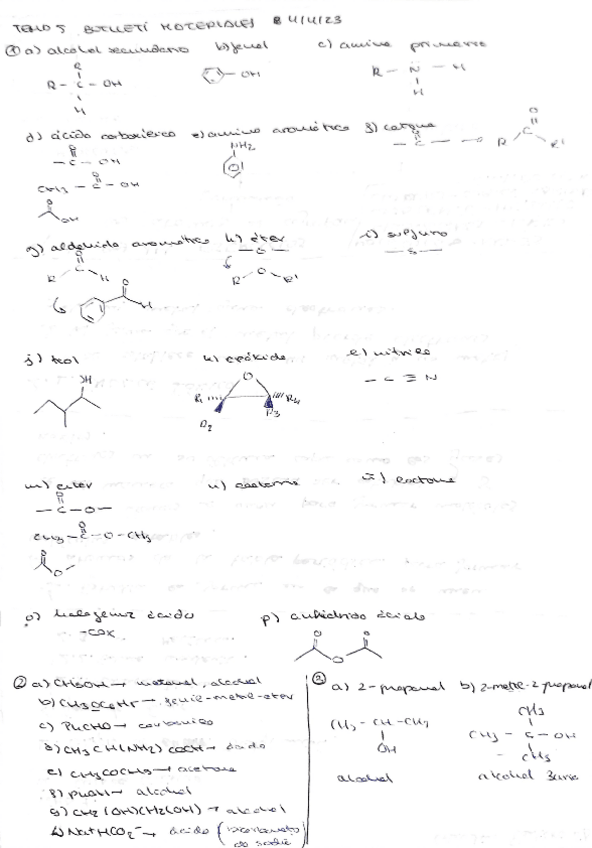 TEMA 5 BUTLLETÍ MATERIALES 4/4/23
① a) alcohol secundario b) fenol c) amina primaria
R
R - C - OH
H
OH
R - N - H
H
d) ácido carboxílico e) amina aromática f) cetona
O
- C - OH
NH2
O
- C -
O
R R'
O
CH3 - C - OH
OH
g) aldehído aromático h) éter i) sulfuro
O
R C H
- O -
R O R'
- S -
O
H
j) tiol k) epóxido l) nitrilo
OH
O
R1 R4
R2 R3
- C ≡ N
m) ester n) lactama ñ) lactona
O
- C - O -
O
CH3 - C - O - CH3
O
O
o) halogenur ácido p) anhídrido ácido
- COX
O O
O
② a) CH3OH → metanol, alcohol
b) CH3OC6H5 → fenil-metil-eter
c) PhCHO → carbonilo
d) CH3CH(NH2)COOH → ácido
e) CH3COCH3 → acetona
f) PhOH → alcohol
g) CH2(OH)CH2(OH) → alcohol
h) Na+HCO2- → ácido (bicarbonato de sodio
③ a) 2-propanol b) 2-metil-2-propanol
CH3 - CH - CH3
OH
CH3
CH3 - C - OH
CH3
alcohol
alcohol